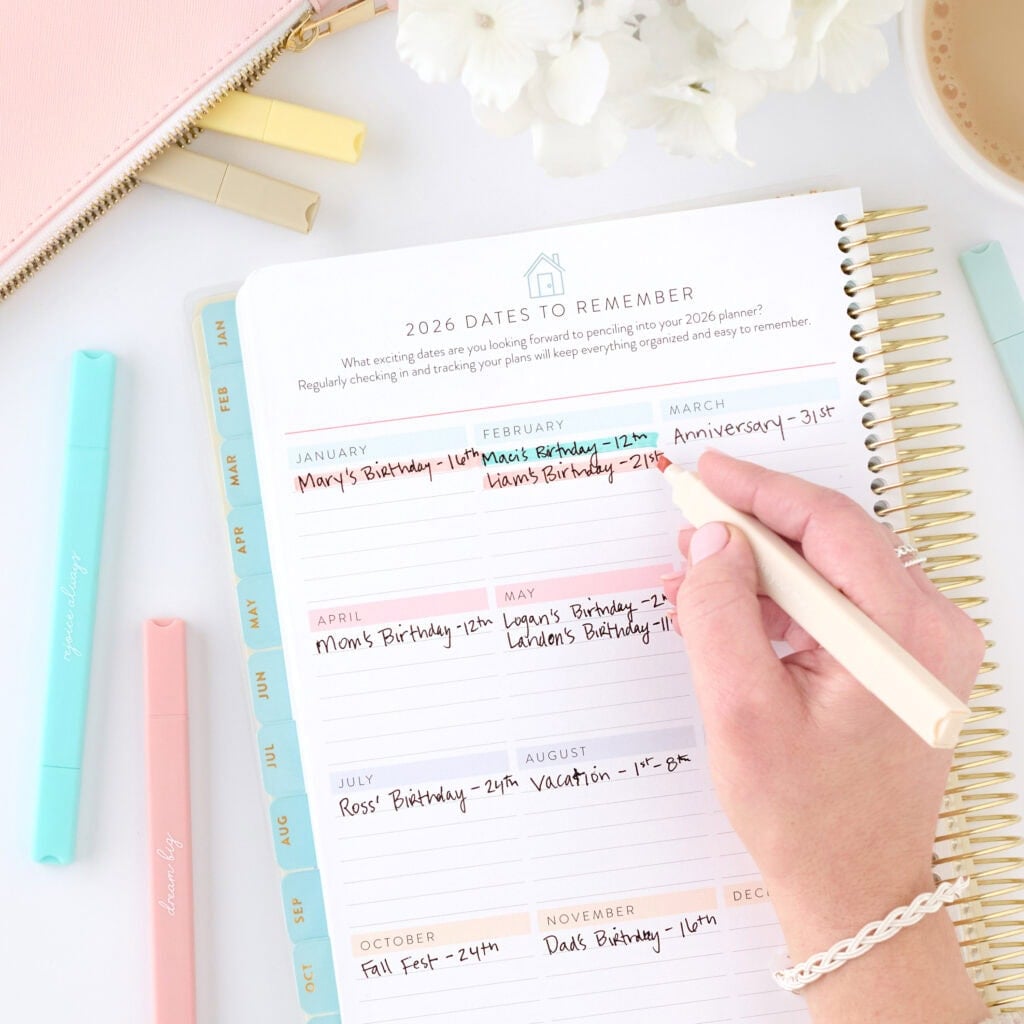 2026 DATES TO REMEMBER
What exciting dates are you looking forward to penciling into your 2026 planner?
Regularly checking in and tracking your plans will keep everything organized and easy to remember.
JAN
FEB
MAR
APR
MAY
JUN
JUL
AUG
SEP
OCT
JANUARY
Mary's Birthday - 16th
FEBRUARY
Maci's Birthday - 12th
Liam's Birthday - 21st
MARCH
Anniversary - 31st
APRIL
Mom's Birthday - 12th
MAY
Logan's Birthday -
Landon's Birthday -
JULY
Ross' Birthday - 24th
AUGUST
Vacation - 1st - 8th
OCTOBER
Fall Fest - 24th
NOVEMBER
Dad's Birthday - 16th
rejoice always
dream big